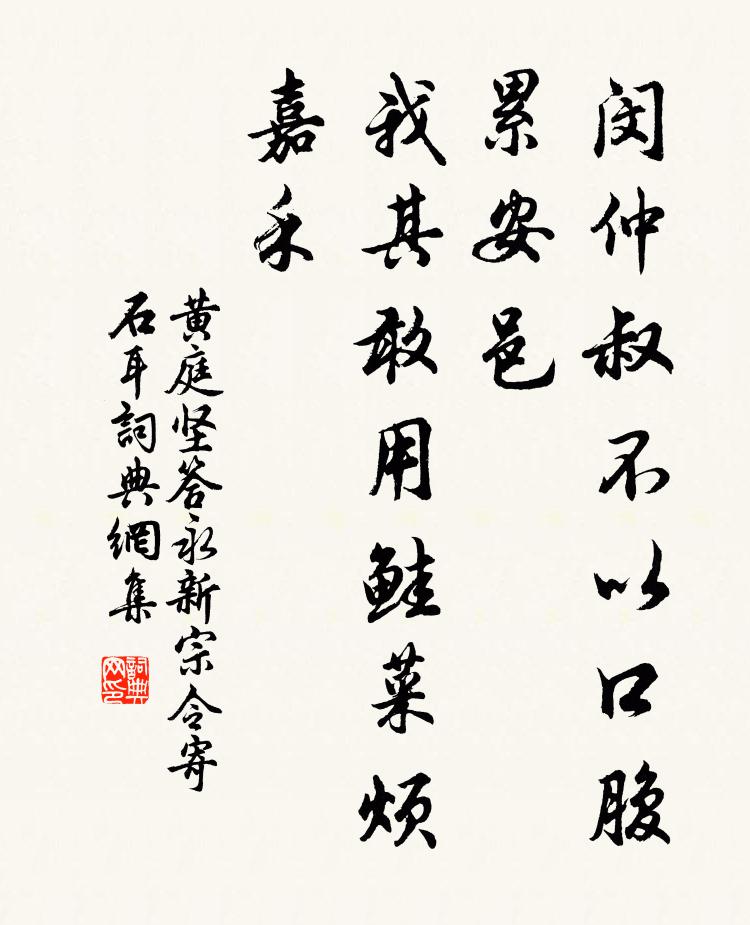 闵仲叔不以口腹
累安邑
我其敢用鲑菜烦
嘉禾
黄庭坚答永新宗令寄
石耳詞典網集
詞典网印